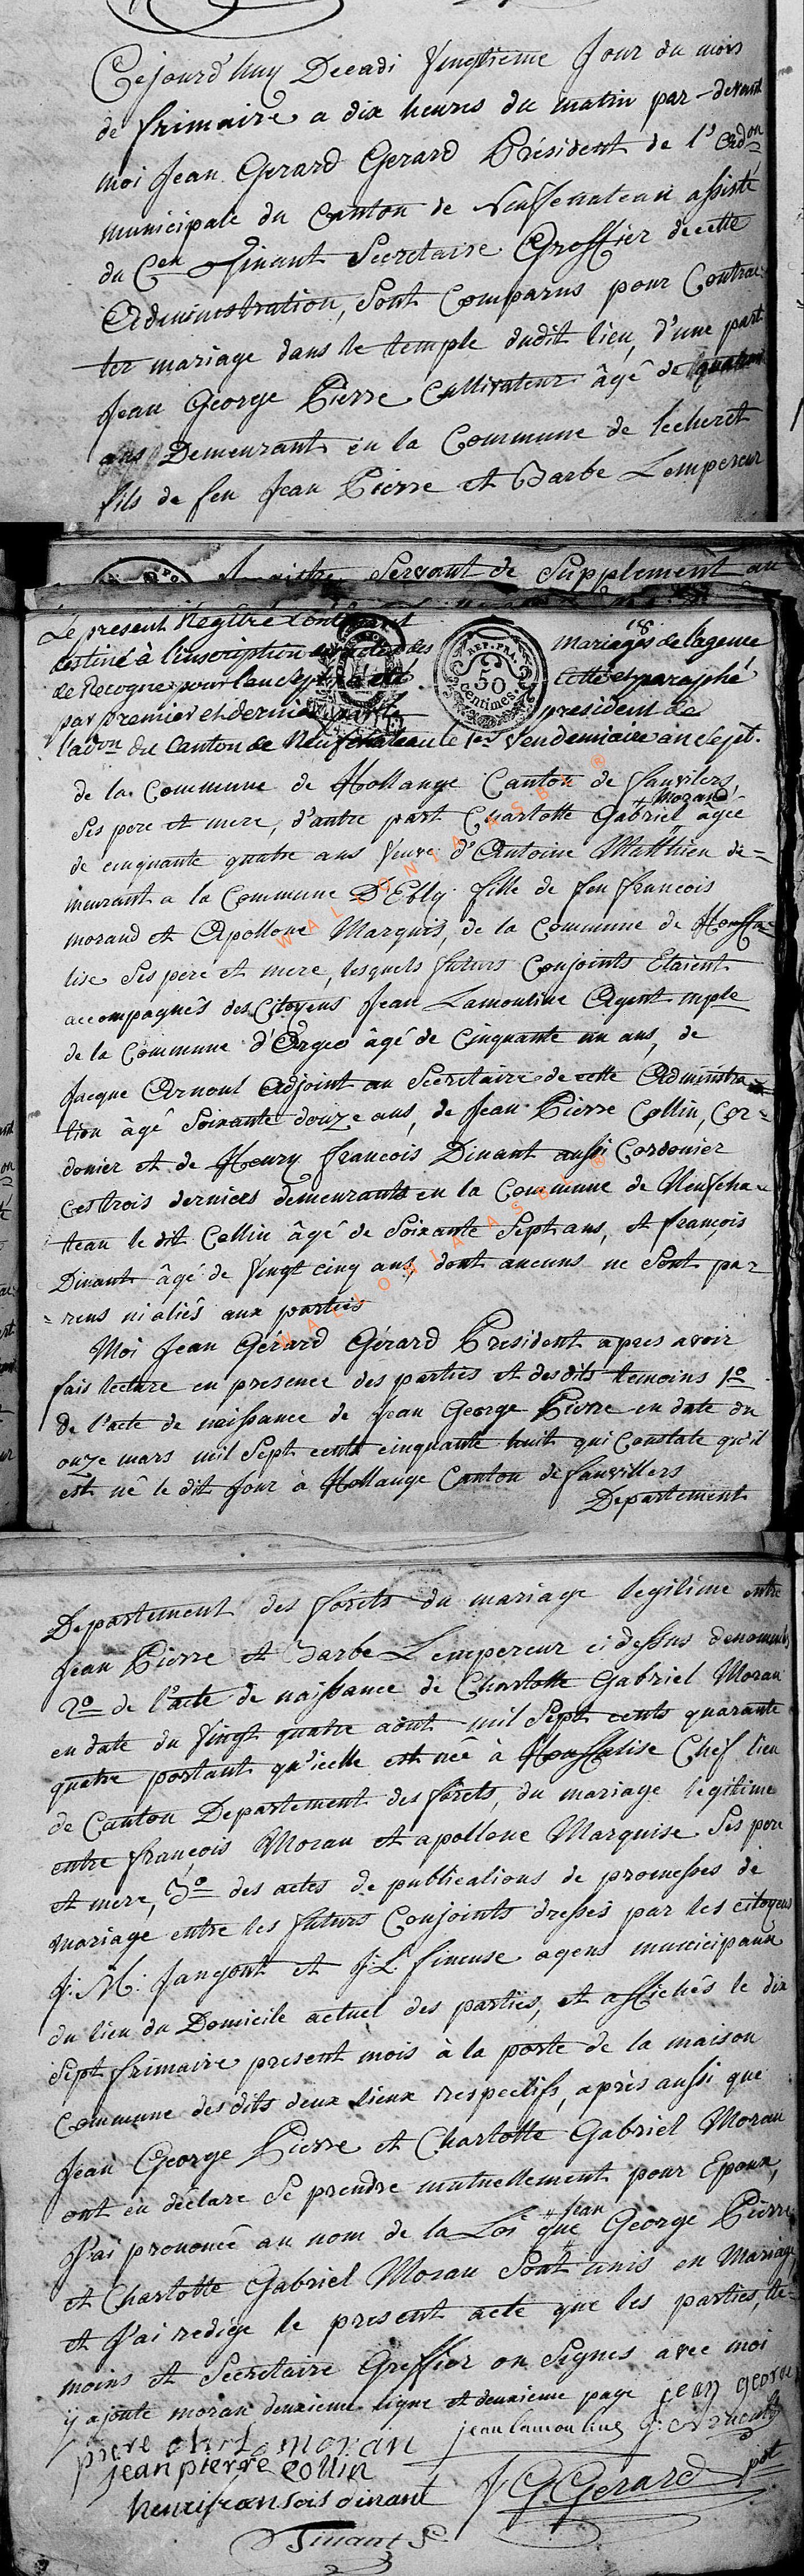 Cejourd'huy Decadi Vingtieme Jour du mois
de frimaire a dix heures du matin par-devant
moi Jean Gerard Gerard Président de l'adon
municipale du Canton de Neuffchateau assisté
du Cen Dinant Secretaire Greffier de cette
Administration, Sont Comparus pour Contrac-
ter mariage dans le temple dudit lieu, d'une part
Jean George Pierre Cultivateur âgé de quarante
ans Demeurant en la Commune de lecheret
fils de feu Jean Pierre et Barbe Lempereur
Registre Servant de Supplement au
Le present Registre contenant
destiné à l'inscription des actes des mariages de l'agence
de Recogne pour l'an sept a été Cotté et paraphé
par premier et dernier president de
l'adon du Canton de Neufchateau le 1er Vendemiaire an Sept.
REP. FRA.
50
Centimes
de la Commune de Hollange Canton de fauvilers,
Morand
Ses pere et mere, d'autre part Charlotte Gabriel âgée
de cinquante quatre ans Veuve d'Antoine Matthieu de=
meurant a la Commune D'Ebly fille de feu francois
morand et Apollone Marquis, de la Commune de Houffa=
lise Ses pere et mere, lesquels futurs Conjoints Etaient
accompagnés des Citoyens Jean Lamouline Agent mple
de la Commune d'Orgeo âgé de Cinquante un ans, de
Jacque Arnoul Adjoint au Secretaire de cette Administra-
tion âgé Soixante douze ans, de Jean Pierre Collin, Cor=
donier et de Henry francois Dinant aussi Cordonier
Ces trois derniers demeurants en la Commune de Neufcha-
teau le dit Collin âgé de Soixante Sept ans, et françois
Dinant âgé de Vingt cinq ans, dont aucuns ne Sont pa-
=rens ni aliés aux parties
WALLONIA ASBL ®
WALLONIA ASBL ®
Moi Jean Gérard Gérard President apres avoir
fais lecture en presence des parties et desdits temoins 1o
de l'acte de naissance de Jean George Pierre en date du
onze mars mil Sept cents cinquante huit qui Constate qu'il
est né le dit Jour à Hollange Canton de fauvillers
Departement
Departement des forêts du mariage legitime entre
Jean Pierre et Barbe Lempereur ci dessus denommés
2o de l'acte de naissance de Charlotte Gabriel Moran
en date du Vingt quatre aout mil Sept cents quarante
quatre portant qu'icelle est née à Houffalise Chef lieu
de Canton Departement des forêts, du mariage legitime
entre françois Moran et apollone Marquise Ses pere
et mere, 3o des actes de publications de promesses de
mariage entre les futurs Conjoints dressés par les citoyens
J: M: Jangout et J: L: fineuse agens municipaux
du lieu du Domicile actuel des parties, et affichés le dix
Sept frimaire present mois à la porte de la maison
Commune desdits deux lieux respectifs, après aussi que
Jean George Pierre et Charlotte Gabriel Moran
ont eu déclare Se prendre mutuellement pour Epoux,
Jean
J'ai prononcé au nom de la Loi que George Pierre
et Charlotte Gabriel Moran Sont unis en Mariage
et J'ai redige le present acte que les parties, te-
moins et Secretaire Greffier on Signes avec moi
y ajoute moran deuxieme ligne et deuxieme page jean george
pierre charl moran jean lamouline
jean pierre collin
henri fransois dinant J G Gerard pdt
Dinant S